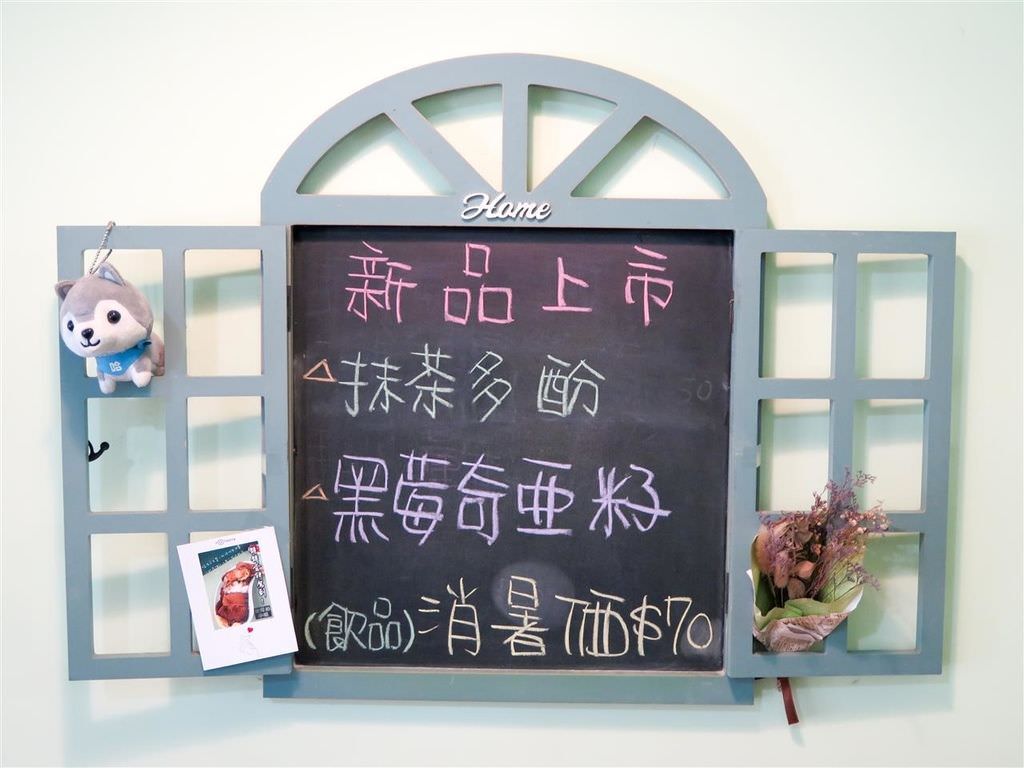 Home
新品上市
△抹茶多酚
△黑莓奇亜籽
(飲品)消暑価$70
哈